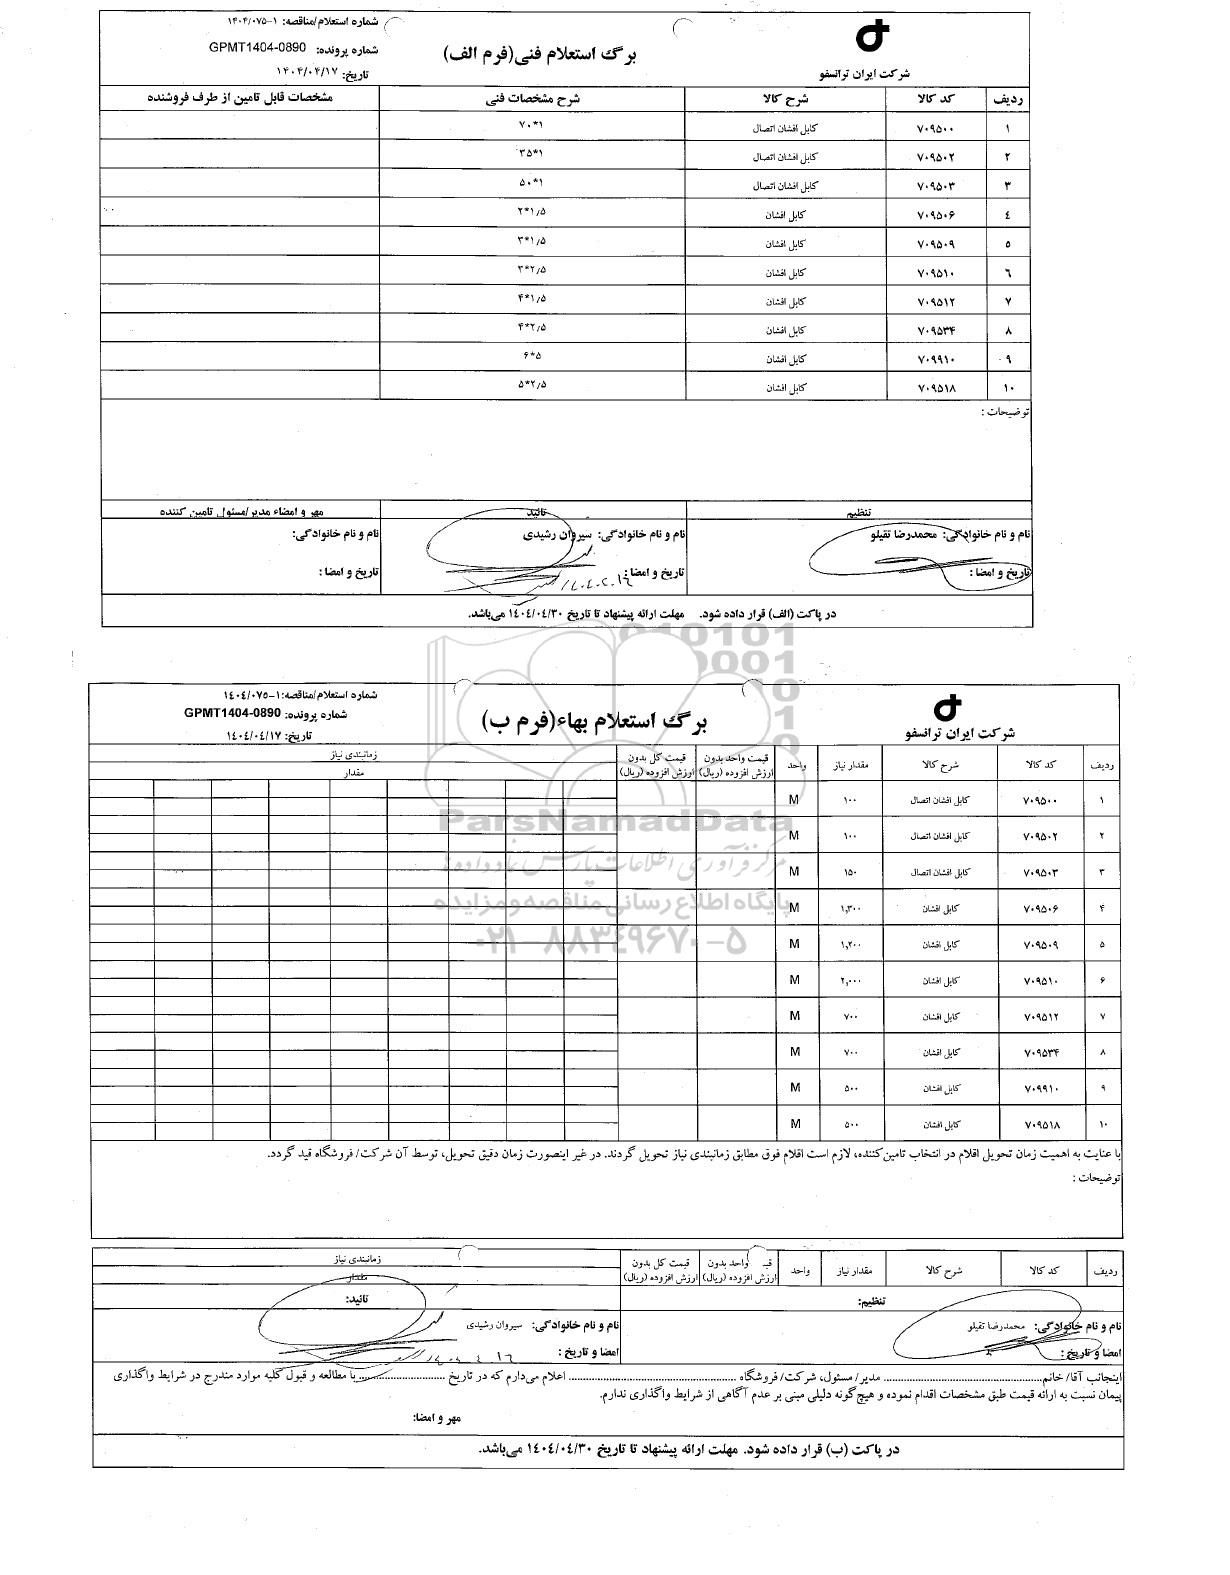 شماره استعلام/مناقصه: ۱-۱۴۰۴/۰۷۵
برگ استعلام فنی(فرم الف)
شماره پرونده: GPMT1404-0890
شرکت ایران ترانسفو
تاریخ: ۱۴۰۴/۰۴/۱۷
ردیف کد کالا شرح کالا شرح مشخصات فنی مشخصات قابل تامین از طرف فروشنده
۱ ۷۰۹۵۰۰ کابل افشان اتصال ۷۰*۱
۲ ۷۰۹۵۰۲ کابل افشان اتصال ۳۵*۱
۳ ۷۰۹۵۰۳ کابل افشان اتصال ۵۰*۱
۴ ۷۰۹۵۰۶ کابل افشان ۲*۱/۵
۵ ۷۰۹۵۰۹ کابل افشان ۳*۱/۵
۶ ۷۰۹۵۱۰ کابل افشان ۳*۲/۵
۷ ۷۰۹۵۱۲ کابل افشان ۴*۱/۵
۸ ۷۰۹۵۳۴ کابل افشان ۴*۲/۵
۹ ۷۰۹۹۱۰ کابل افشان ۶*۵
۱۰ ۷۰۹۵۱۸ کابل افشان ۵*۲/۵
توضیحات :
تنظیم تائید مهر و امضاء مدیر/مسئول تامین کننده
نام و نام خانوادگی: محمدرضا تقیلو نام و نام خانوادگی: سیروان رشیدی نام و نام خانوادگی:
تاریخ و امضا : تاریخ و امضا : تاریخ و امضا :
در پاکت (الف) قرار داده شود. مهلت ارائه پیشنهاد تا تاریخ ۱۴۰۴/۰۴/۳۰ می‌باشد.
شماره استعلام/مناقصه: ۱-۱۴۰۴/۰۷۵
برگ استعلام بهاء(فرم ب)
شماره پرونده: GPMT1404-0890
شرکت ایران ترانسفو
تاریخ: ۱۴۰۴/۰۴/۱۷
ردیف کد کالا شرح کالا مقدار نیاز واحد قیمت واحد بدون ارزش افزوده (ریال) قیمت کل بدون ارزش افزوده (ریال) زمانبندی نیاز
مقدار
۱ ۷۰۹۵۰۰ کابل افشان اتصال ۱۰۰ M
۲ ۷۰۹۵۰۲ کابل افشان اتصال ۱۰۰ M
۳ ۷۰۹۵۰۳ کابل افشان اتصال ۱۵۰ M
۴ ۷۰۹۵۰۶ کابل افشان ۱,۳۰۰ M
۵ ۷۰۹۵۰۹ کابل افشان ۱,۲۰۰ M
۶ ۷۰۹۵۱۰ کابل افشان ۲,۰۰۰ M
۷ ۷۰۹۵۱۲ کابل افشان ۷۰۰ M
۸ ۷۰۹۵۳۴ کابل افشان ۷۰۰ M
۹ ۷۰۹۹۱۰ کابل افشان ۵۰۰ M
۱۰ ۷۰۹۵۱۸ کابل افشان ۵۰۰ M
ParsNamadData
مرکز فرآوری اطلاعات پارس نماد داده ها
پایگاه اطلاع رسانی مناقصه و مزایده
۰۲۱-۸۸۳۴۹۶۷۰-۵
با عنایت به اهمیت زمان تحویل اقلام در انتخاب تامین‌کننده، لازم است اقلام فوق مطابق زمانبندی نیاز تحویل گردند. در غیر اینصورت زمان دقیق تحویل، توسط آن شرکت/ فروشگاه قید گردد.
توضیحات :
ردیف کد کالا شرح کالا مقدار نیاز واحد واحد بدون ارزش افزوده (ریال) قیمت کل بدون ارزش افزوده (ریال) زمانبندی نیاز
مقدار
تنظیم: تائید:
نام و نام خانوادگی: محمدرضا تقیلو نام و نام خانوادگی: سیروان رشیدی
امضا و تاریخ : امضا و تاریخ :
اینجانب آقا/ خانم........ مدیر/ مسئول، شرکت/ فروشگاه ........ اعلام می‌دارم که در تاریخ ........ با مطالعه و قبول کلیه موارد مندرج در شرایط واگذاری
پیمان نسبت به ارائه قیمت طبق مشخصات اقدام نموده و هیچ‌گونه دلیلی مبنی بر عدم آگاهی از شرایط واگذاری ندارم.
مهر و امضا:
در پاکت (ب) قرار داده شود. مهلت ارائه پیشنهاد تا تاریخ ۱۴۰۴/۰۴/۳۰ می‌باشد.